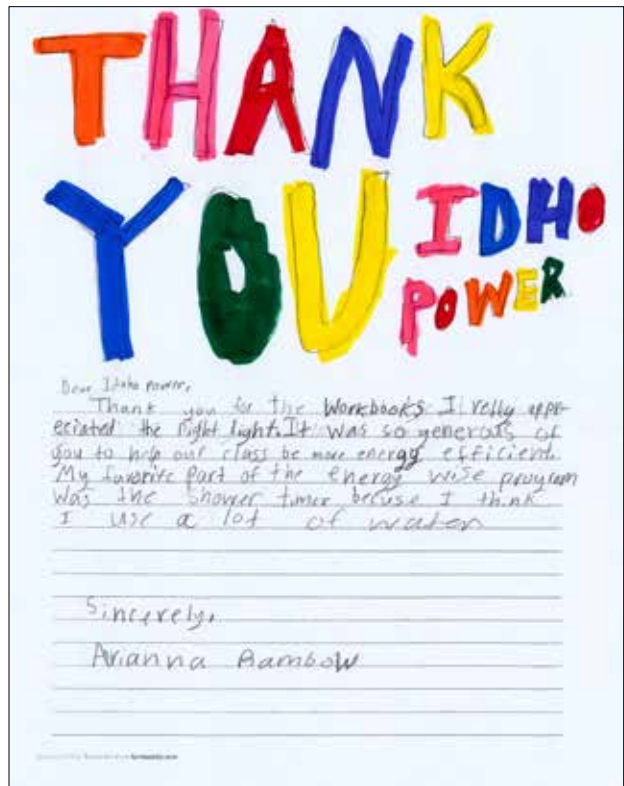 THANK
YOU IDHO
POWER
Dear Idaho power,
Thank you for the Workbooks I relly appr-
eciated the night light. It was so generals of
you to help our class be more energy efficient.
My favorite part of the energy wise program
was the shower timer becuse I think
I use a lot of water
Sincerely,
Arianna